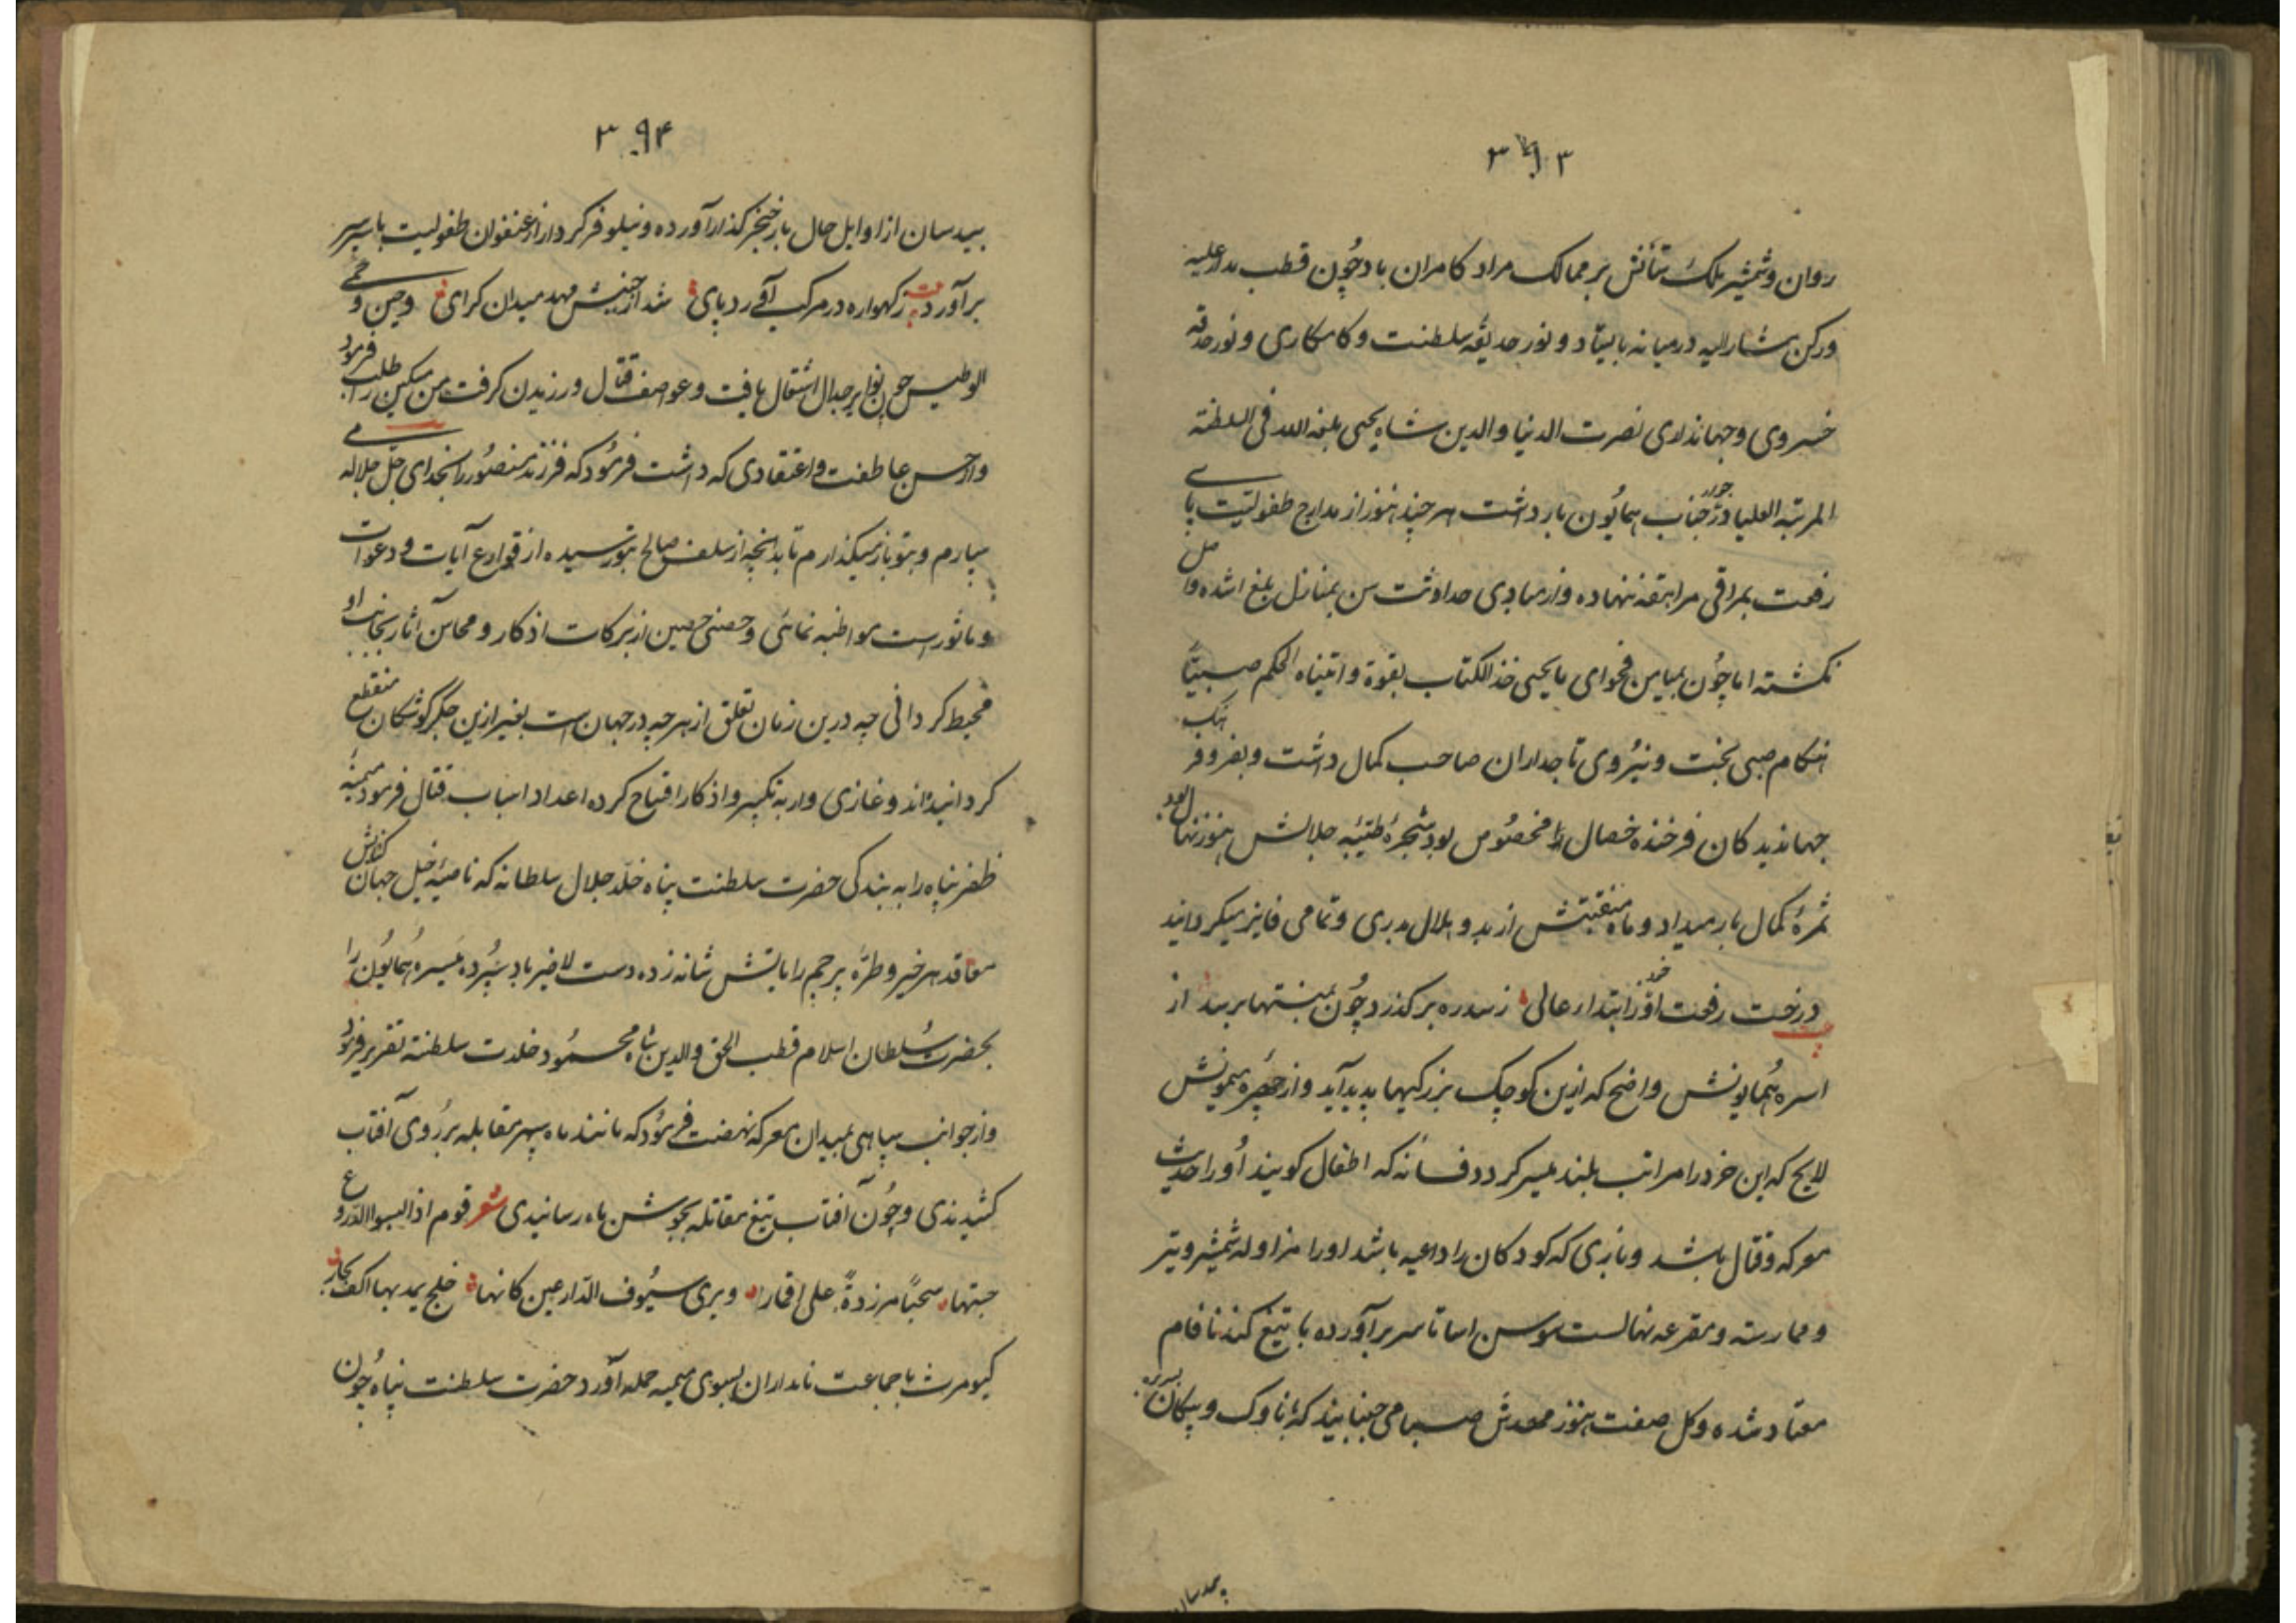 ۳۹۳
روان و شمشیر ملک ستانش بر ممالک مراد کامران باد چون قطب مدار علیه
و رکن مشار الیه در میانه بایستاد و نور حدیقه سلطنت و کامکاری و نور حدقه
خسروی و جهانداری نصرت الدنیا والدین شاه یحیی بلغه الله فی السلطنة
المرتبه العلیا در جوار جناب همایون باز داشت هر چند هنوز از مدارج طفولیت پای
رفعت بمراقی مراهقه ننهاده و از مبادی حداثت سن بمنازل بلغ اشده واصل
نکشته اما چون بمیامن فحوای یا یحیی خذ الکتاب بقوة و اتیناه الحکم صبیّاً
هنکام صبی بخت و نیروی تاجداران صاحب کمال داشت و بفر و فرهنک
جهاندیدکان فرخنده خصال مخصوص بود شجرهٔ طیّبه جلالش هنوز نهال بود
ثمرهٔ کمال بار میداد و ماه منقبتش از بدو هلال بدری و تمامی فایز میکردانید
درخت رفعت او خود ز ابتدار عالی ز سدره بر کذرد چون بمنتها برسد از
اسره همایونش واضح که ازین کوچک بزرکیها پدید آید و از چهره میمونش
لایح که این خرد را مراتب بلند میسر کردد فسانه که اطفال کویند او را حدیث
معرکه و قتال باشد و بازی که کودکان را داعیه باشد او را مزاوله شمشیر و تیر
و ممارسه و مقرعه نهالست سوسن اسا تا سر برآورده با تیغ کند نا فام
معتاد شده و کل صفت هنوز مهدش صبا می جنبانید که با ناوک و پیکان بسر برد
بیدسان
۳۹۴
بیدسان از اوایل حال با خنجر کذار آورده و نیلوفر کردار از عنفوان طفولیت با سپر سر
برآورد بیت ز کهواره در مرکب آورد پای شد از جنبش مهد میدان کرای و حین حمی
الوطیس چون نوایر جدال اشتعال یافت و عواصف قتال ورزیدن کرفت من مسکین را طلب فرمود
و از حسن عاطفت و اعتقادی که داشت فرمود که فرزند منصور را بخدای جل جلاله می
سپارم و بتو باز میکذارم تا بدانچه از سلف صالح بتو رسیده از قوارع آیات و دعوات
و ماثورست مواظبه نمائی و حصنی حصین از برکات اذکار و محاسن آثار بجانب او
محیط کردانی چه درین زمان تعلق از هر چه در جهان است بغیر ازین جکر کوشکان منقطع
کردانیده‌اند و غازی وار به تکبیر و اذکار افتتاح کرده اعداد اسباب قتال فرمود میمنهٔ
ظفر پناه را به بندکی حضرت سلطنت پناه خلّد جلال سلطانه که ناصیهٔ خیل جهان کشایش
معاقد هر خیر و طرّه پرچم رایاتش شانه زده دست لاضیر باد سپرده میسره همایون را
بحضرت سلطان اسلام قطب الحق والدین شاه محمود خلدت سلطنة تقریر فرمود
و از جوانب سپاهی بمیدان معرکه نهضت فرمود که مانند ماه سپر مقابله بر روی آفتاب
کشیدندی و چون آفتاب تیغ مقاتله بجوشن ماه رسانیدی شعر قوم اذا لبسوا الدروع
حسبتها سحباً مزردةً علی اقمار و بری سیوف الدارعین کانها خلج یمد بها اکف بحار
کیومرث با جماعت نامداران بسوی میمنه حمله آورد حضرت سلطنت پناه چون